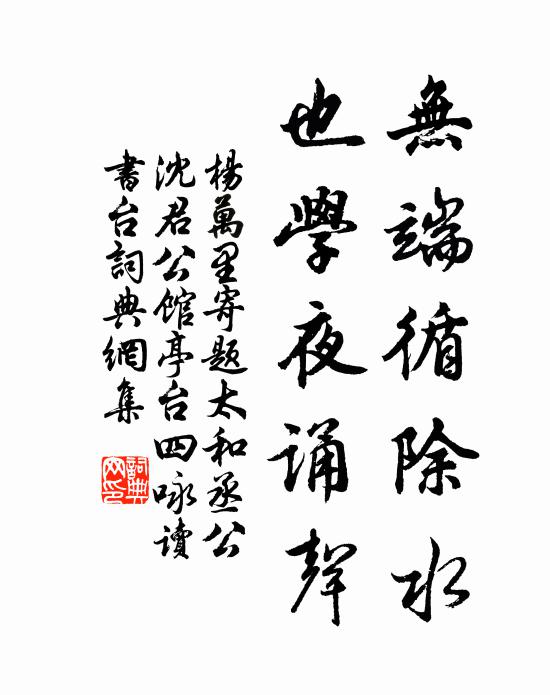 無端循除水
也學夜誦聲
楊萬里寄題太和丞公
沈君公館亭台四咏讀
書台詞典網集
詞典网印